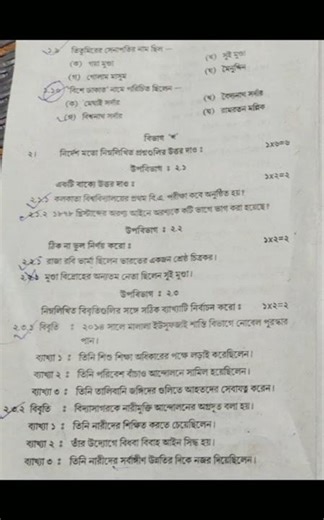 ১.৯ তিতুমিরের সেনাপতির নাম ছিল —
(ক) গয়া মুন্ডা (খ) সুই মুন্ডা
(গ) গোলাম মাসুম (ঘ) মৈনুদ্দিন
১.১০ "বিশে ডাকাত" নামে পরিচিত ছিলেন —
(ক) মেঘাই সর্দার (খ) বৈদ্যনাথ সর্দার
(গ) বিশ্বনাথ সর্দার (ঘ) রামরতন মল্লিক
বিভাগ 'খ'
২। নির্দেশ মতো নিম্নলিখিত প্রশ্নগুলির উত্তর দাও : ১x৬=৬
উপবিভাগ : ২.১
একটি বাক্যে উত্তর দাও : ১x২=২
২.১.১ কলকাতা বিশ্ববিদ্যালয়ের প্রথম বি.এ. পরীক্ষা কবে অনুষ্ঠিত হয়?
২.১.২ ১৮৭৮ খ্রিস্টাব্দের অরণ্য আইনে অরণ্যকে কটি ভাগে ভাগ করা হয়েছে?
উপবিভাগ : ২.২
ঠিক না ভুল নির্ণয় করো : ১x২=২
২.২.১ রাজা রবি ভার্মা ছিলেন ভারতের একজন শ্রেষ্ঠ চিত্রকর।
২.২.২ মুন্ডা বিদ্রোহের অন্যতম নেতা ছিলেন সুই মুন্ডা।
উপবিভাগ : ২.৩
নিম্নলিখিত বিবৃতিগুলির সঙ্গে সঠিক ব্যাখ্যাটি নির্বাচন করো : ১x২=২
২.৩.১ বিবৃতি : ২০১৪ সালে মালালা ইউসুফজাই শান্তি বিভাগে নোবেল পুরস্কার
পান।
ব্যাখ্যা ১ : তিনি শিশু শিক্ষা অধিকারের পক্ষে লড়াই করেছিলেন।
ব্যাখ্যা ২ : তিনি পরিবেশ বাঁচাও আন্দোলনে সামিল হয়েছিলেন।
ব্যাখ্যা ৩ : তিনি তালিবানি জঙ্গিদের গুলিতে আহতদের সেবাযত্ন করেন।
২.৩.২ বিবৃতি : বিদ্যাসাগরকে নারীমুক্তি আন্দোলনের অগ্রদূত বলা হয়।
ব্যাখ্যা ১ : তিনি নারীদের শিক্ষিত করতে চেয়েছিলেন।
ব্যাখ্যা ২ : তাঁর উদ্যোগে বিধবা বিবাহ আইন সিদ্ধ হয়।
ব্যাখ্যা ৩ : তিনি নারীদের সর্বাঙ্গীণ উন্নতির দিকে নজর দিয়েছিলেন।